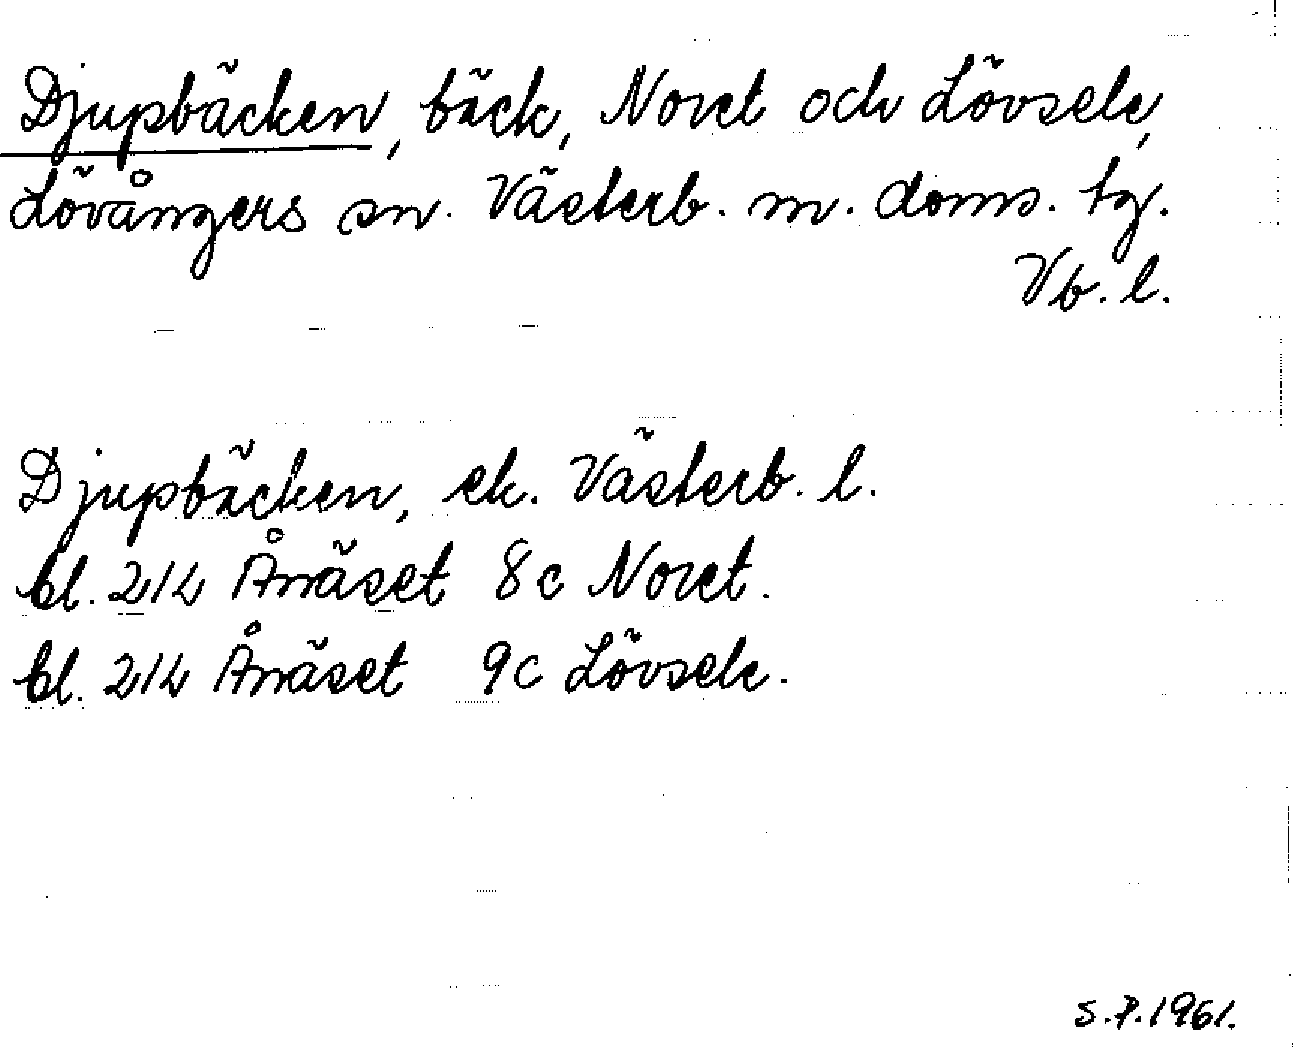 Djupbäcken, bäck, Noret och Lövsele,
Lövångers sn. Västerb. m. doms. tg.
Vb. l.
Djupbäcken, ek. Västerb. l.
bl. 21L Ånäset 8c Noret.
bl. 21L Ånäset 9c Lövsele.
S.P.1961.